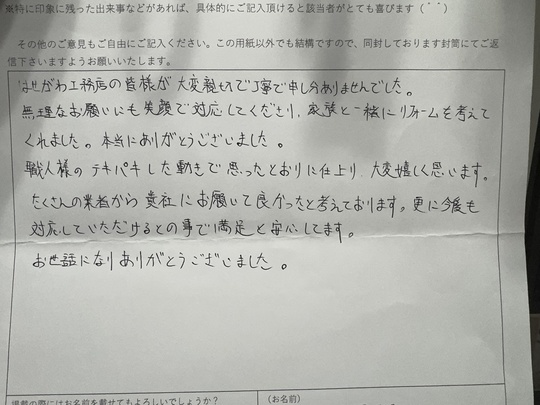 ※特に印象に残った出来事などがあれば、具体的にご記入頂けると該当者がとても喜びます(^^)
その他のご意見もご自由にご記入ください。この用紙以外でも結構ですので、同封しております封筒にてご返
信下さいますようお願いいたします。
はせがわ工務店の皆様が大変親切で丁寧で申し分ありませんでした。
無理なお願いにも笑顔で対応してくださり、家族と一緒にリフォームを考えて
くれました。本当にありがとうございました。
職人様のテキパキした動きで思ったとおりに仕上り、大変嬉しく思います。
たくさんの業者から貴社にお願いて良かったと考えております。更に今後も
対応していただけるとの事で満足と安心してます。
お世話になりありがとうございました。
掲載の際にはお名前を載せてもよろしいでしょうか?
(お名前)